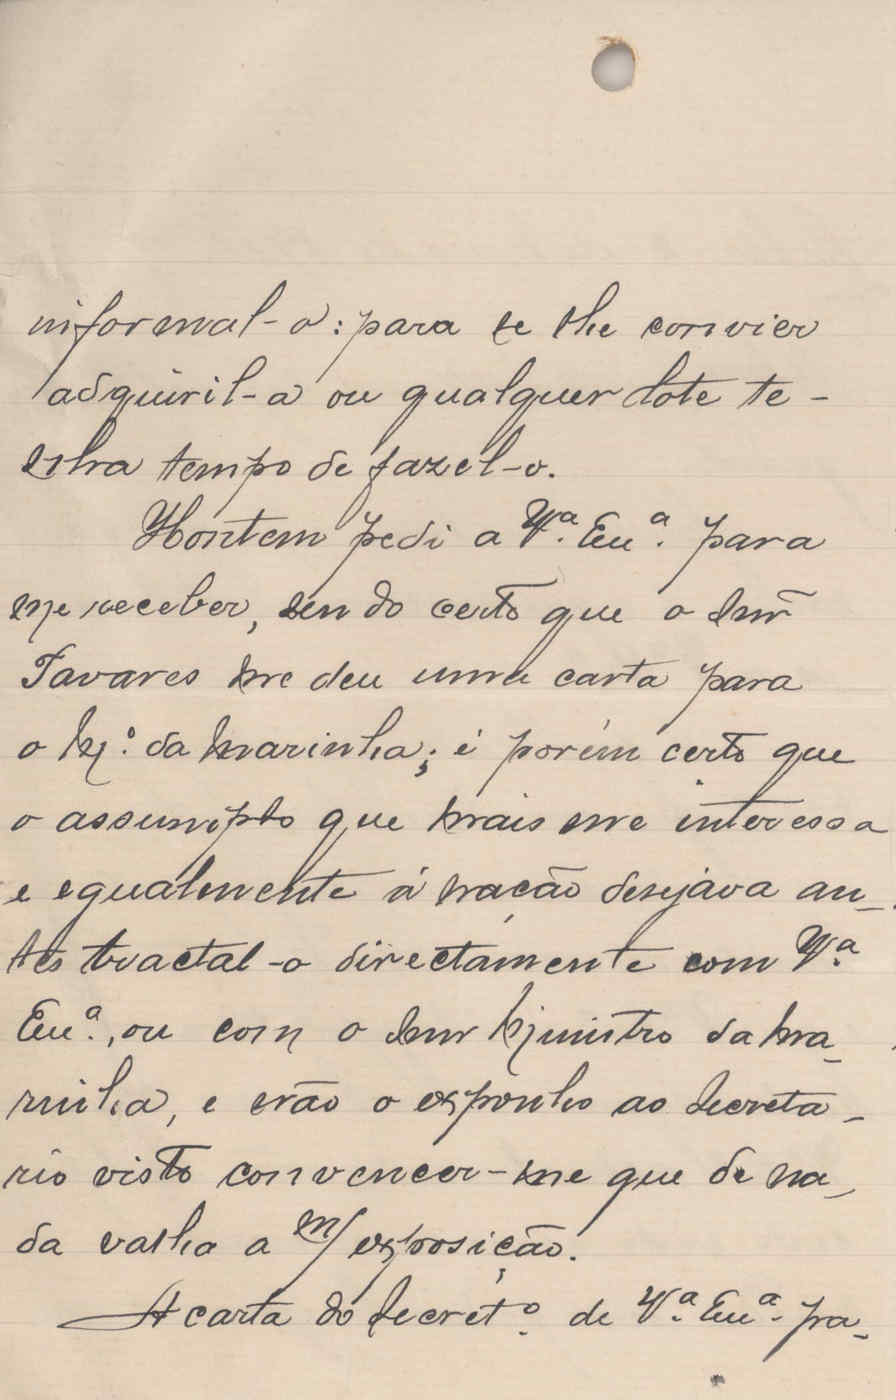 informal-o: para se lhe convier
adquiril-a ou qualquer lote te-
nha tempo de fazel-o.
Hontem pedi a Vª. Exª. para
me receber, sendo certo que o Snr
Tavares me deu uma carta para
o Mº. da Marinha; é porém certo que
o assumpto que mais me interessa
e egualmente á nação desejava an-
tes tractal-o directamente com Vª.
Exª., ou com o Snr Ministro da Ma-
rinha, e não o exponho ao Secreta-
rio visto convencer-me que de na-
da valha a m/ exposição.
A carta do Secretº. de Vª. Exª. pa-